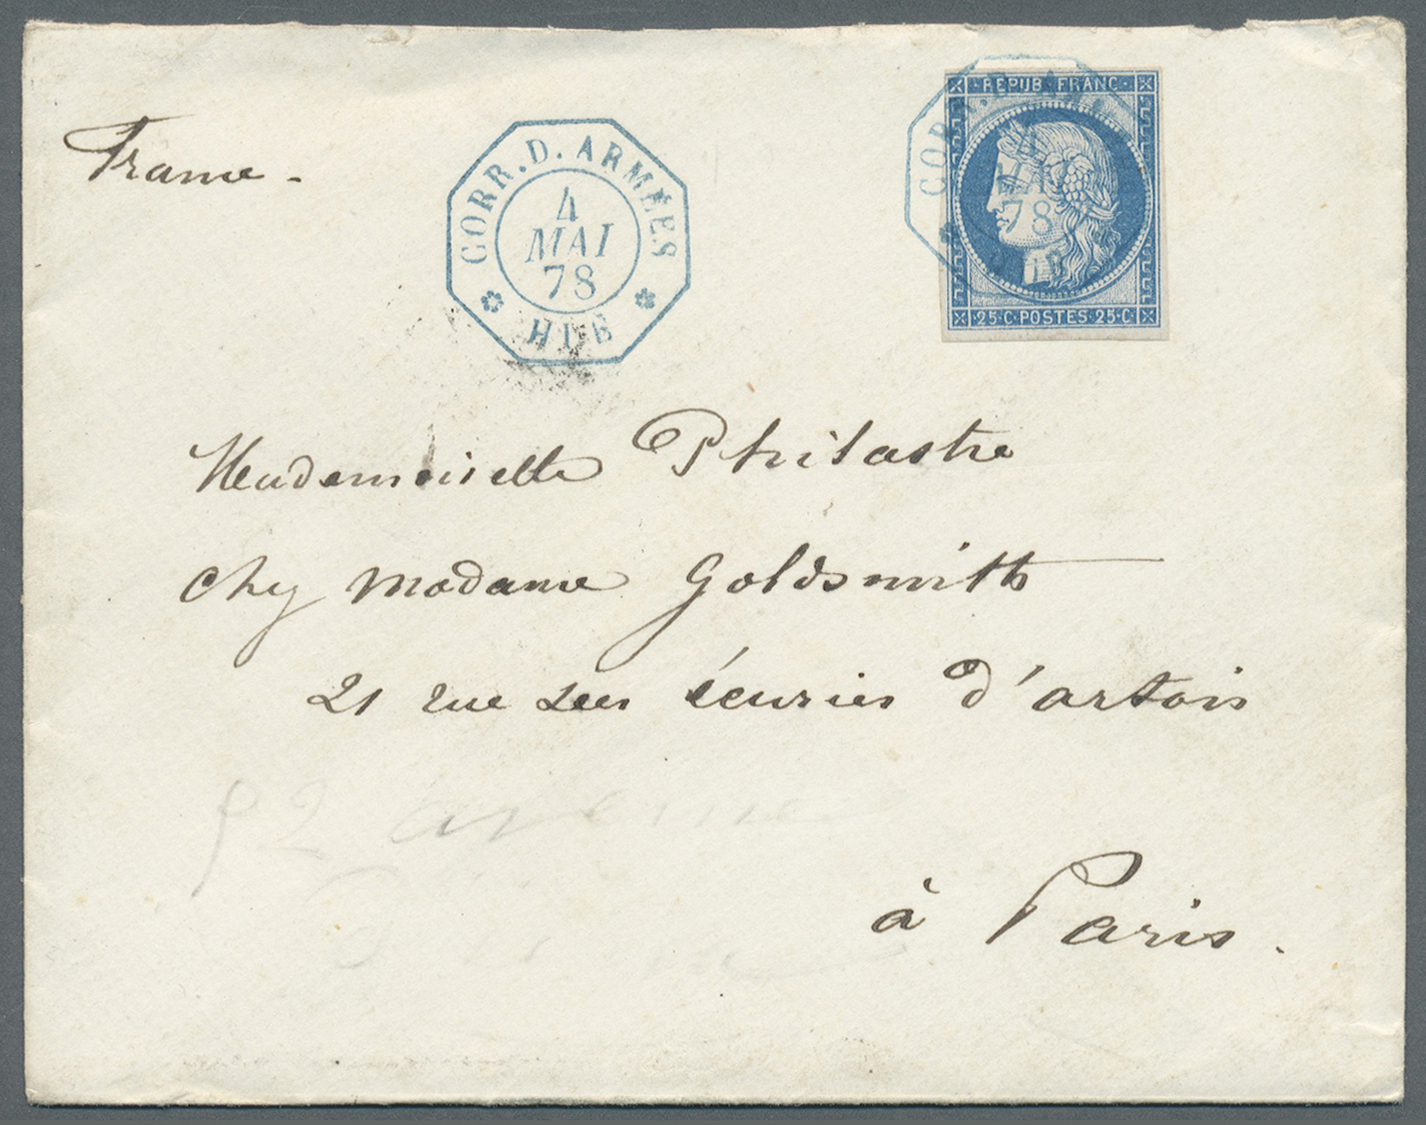 France -
CORR. D. ARMÉES
4
MAI
78
HUE
REPUB FRANC
CORR. D. AR
4
MAI
78
25 C POSTES 25 C
Mademoiselle Philastre
chez Madame Goldsmith
21 rue des écuries d'artois
52 avenue
à Paris.